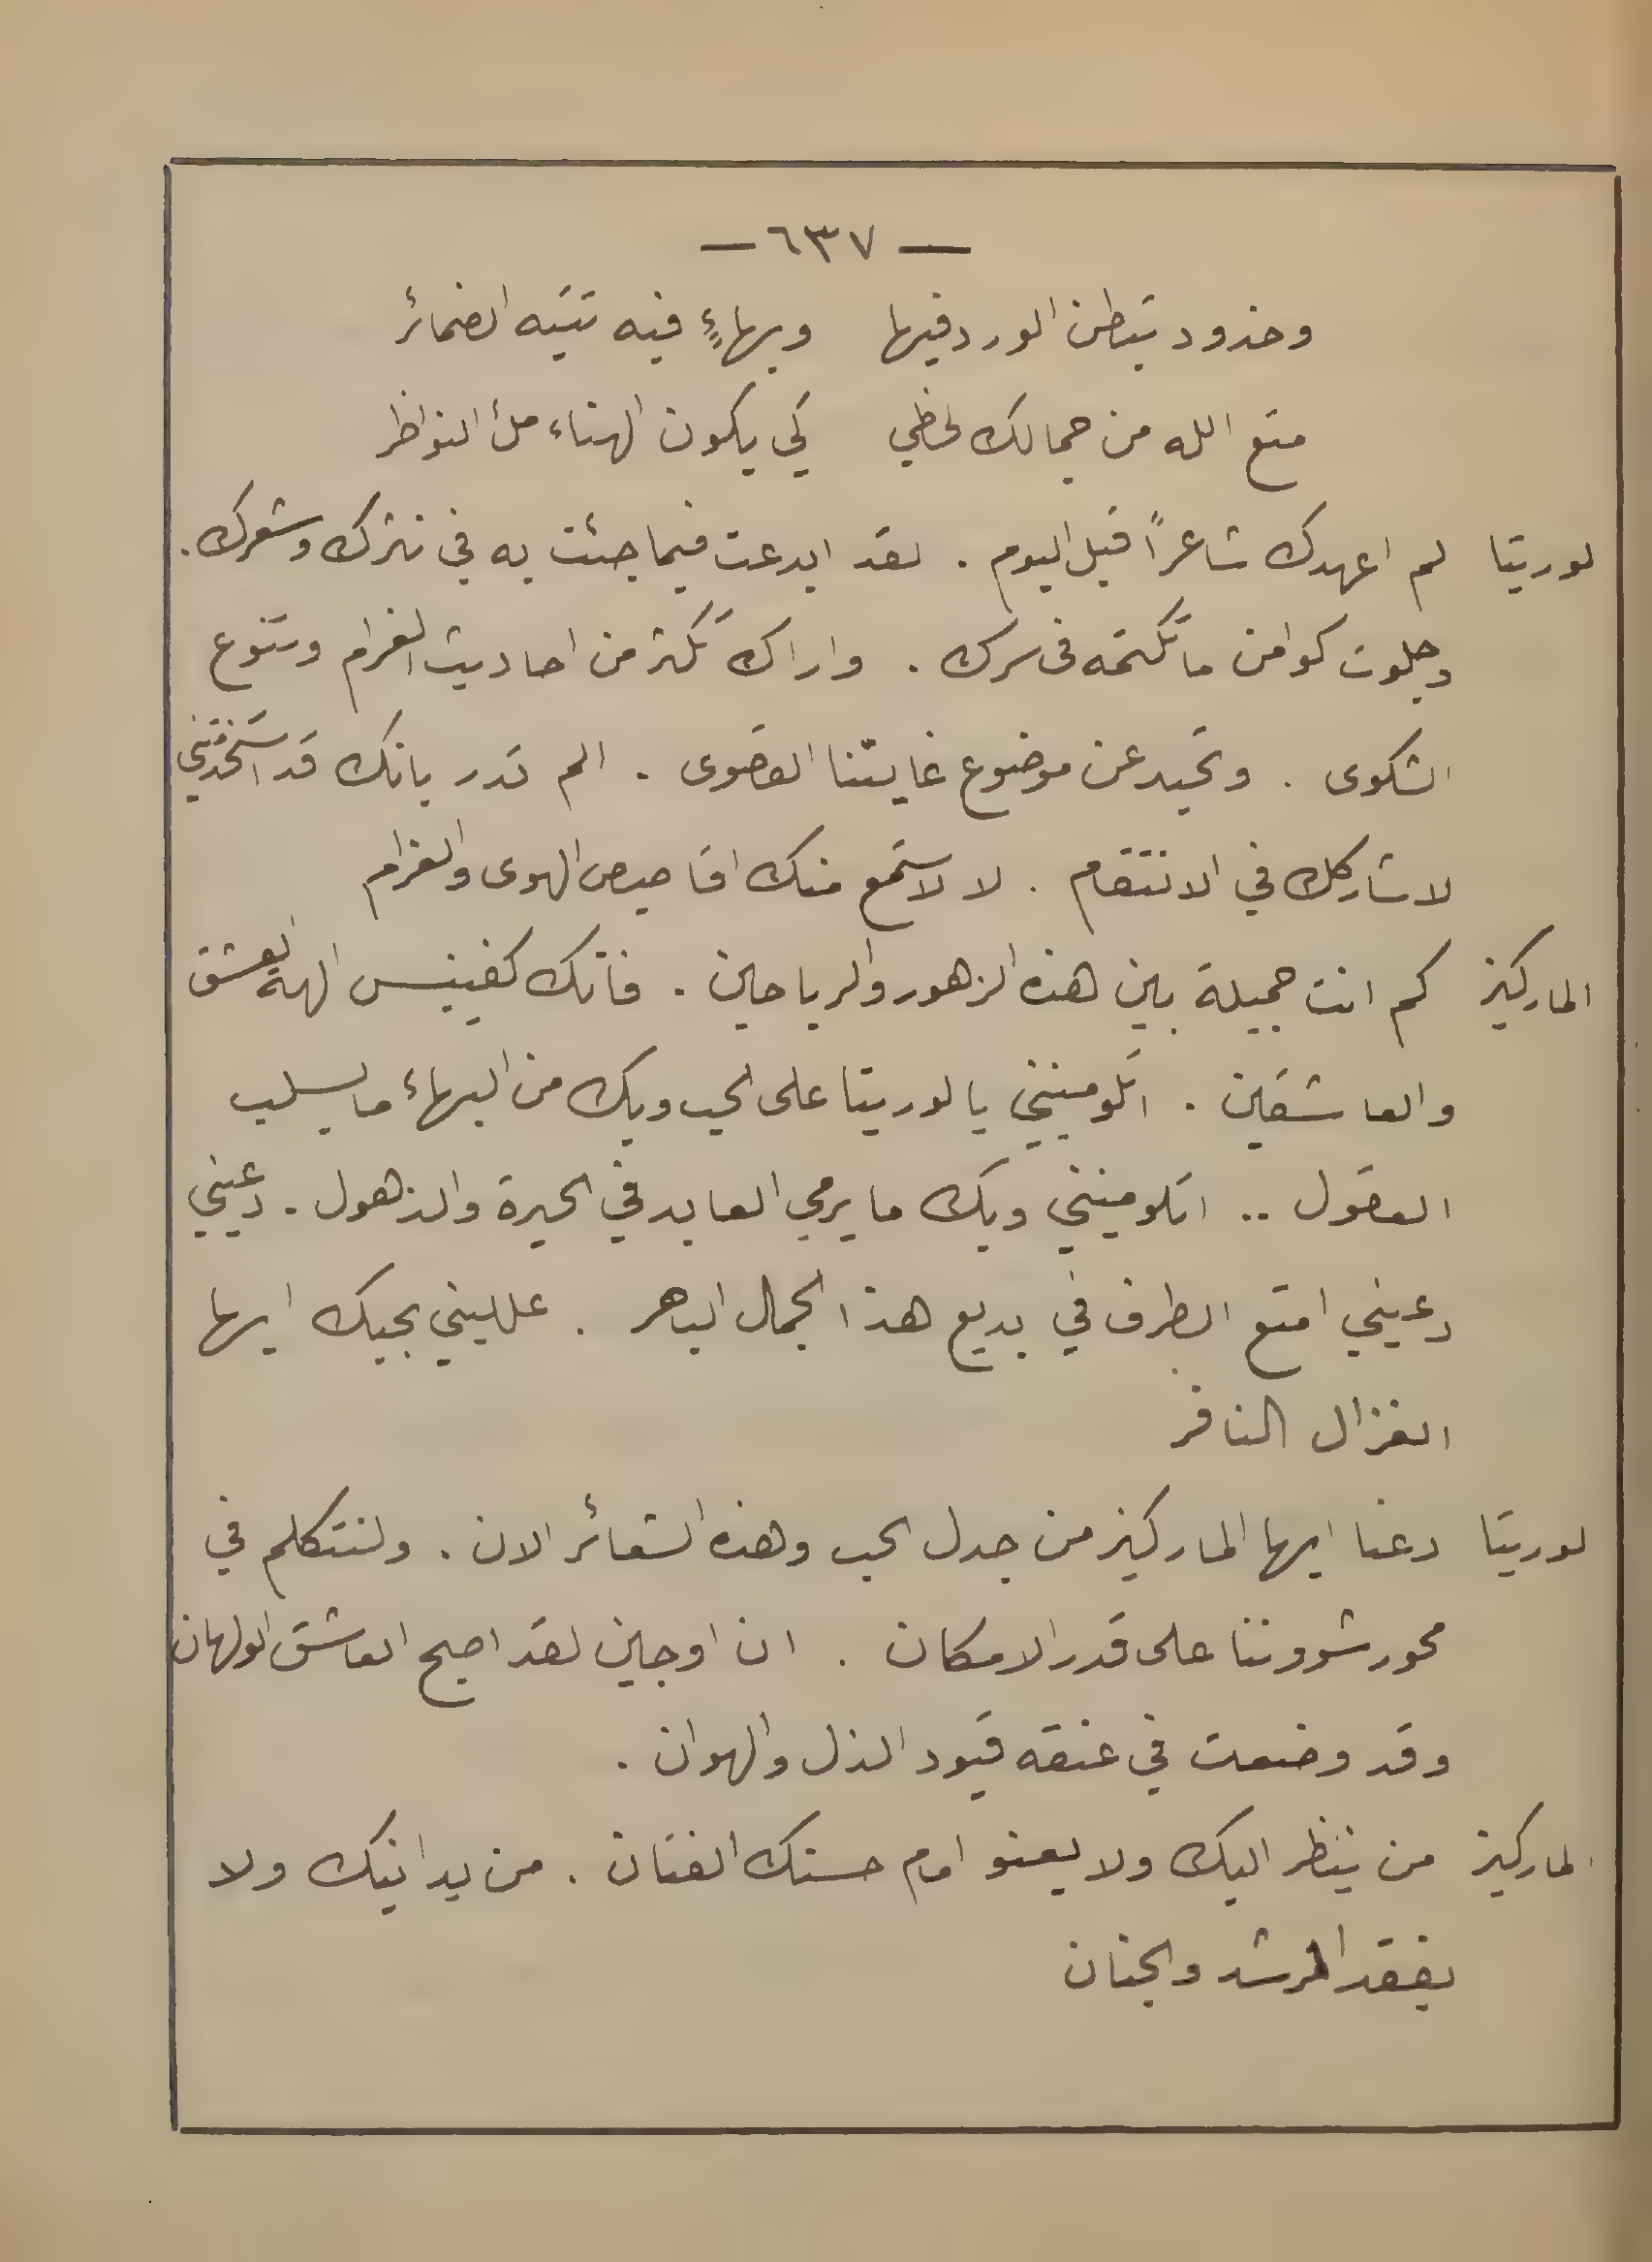 — ٦٣٧ —
وخدود يتبطن الورد فيها وبهاءٍ فيه تتيه الضمائر
متع الله من جمالك لحظي كي يكون الهناء ملأ النواظر
لوريتا لم اعهدك شاعراً قبل اليوم . لقد ابدعت فيما جئت به في نثرك وشعرك .
وجلوت كوامن ما تكتمه في سرك . واراك تكثر من احاديث الغرام وتنوع
الشكوى . وتحيد عن موضوع غايتنا القصوى . الم تدر بانك قد استخدمتني
لاشاركك في الانتقام . لا لاستمع منك اقاصيص الهوى والغرام
الماركيز كم انت جميلة بين هذه الزهور والرياحين . فانك كفينس الهة العشق
والعاشقين . اتلومينني يا لوريتا على الحب وبك من البهاء ما يسلب
العقول .. اتلومينني وبك ما يرمي العابد في الحيرة والذهول . دعيني
دعيني امتع الطرف في بديع هذا الجمال الباهر . علليني بحبك ايها
الغزال النافر
لوريتا دعنا ايها الماركيز من جدل الحب وهذه الشعائر الان . ولنتكلم في
محور شووننا على قدر الامكان . ان اوجين لقد اصبح العاشق الولهان
وقد وضعت في عنقه قيود الذل والهوان .
الماركيز من ينظر اليك ولا يعنو امام حسنك الفتان . من يدانيك ولا
يفقد الرشد والجنان